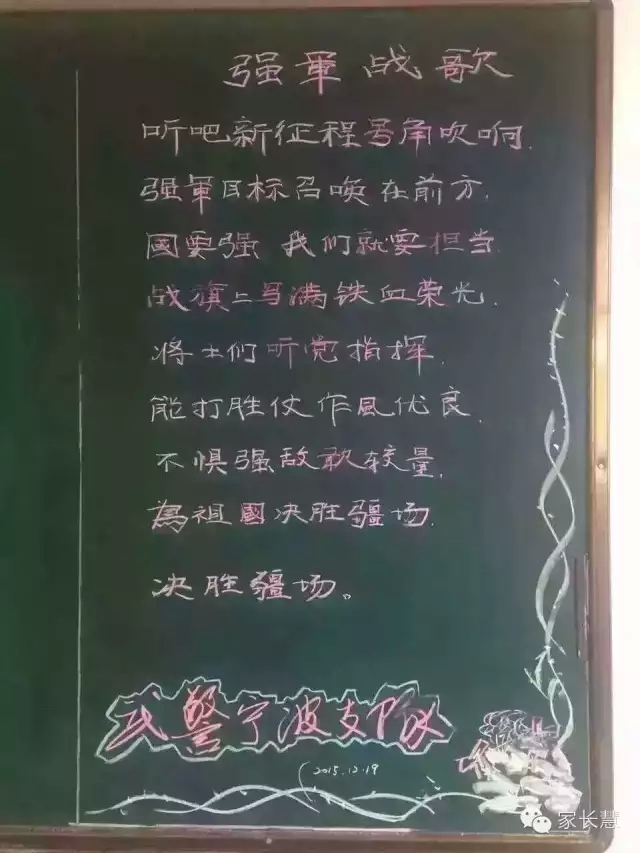 强軍战歌
听吧新征程号角吹响.
强軍目标召唤在前方.
國要强 我们就要担当.
战旗上写满铁血荣光.
将士们听党指挥.
能打胜仗作風优良.
不惧强敌敢较量.
為祖國决胜疆场.
决胜疆场。
武警宁波支队
2015.12.19
家长慧